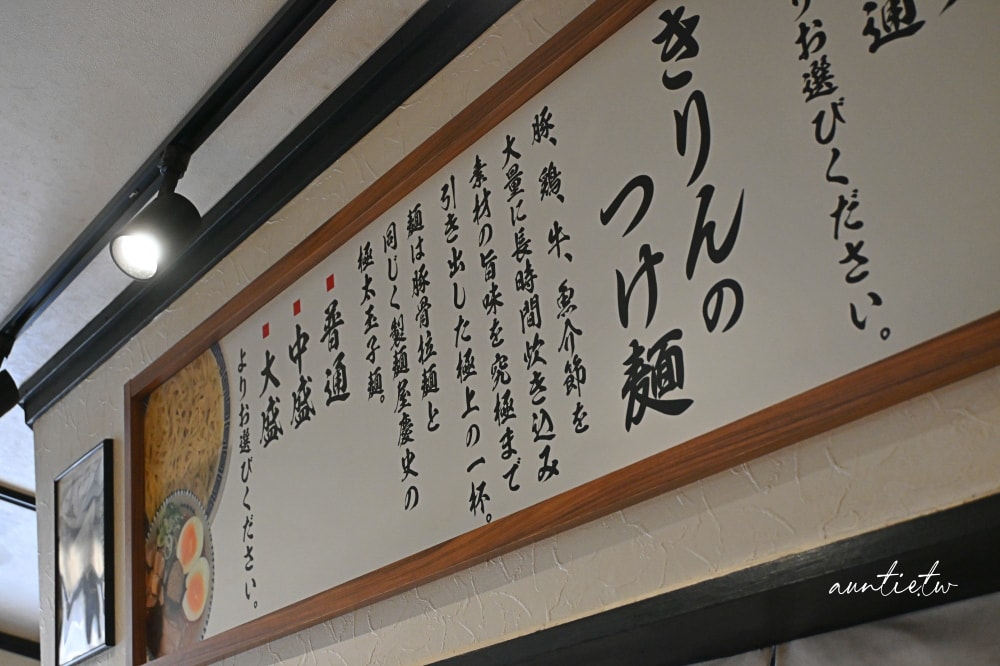 通
りお選びください。
きりんの
つけ麺
豚、鶏、牛、魚介節を
大量に長時間炊き込み
素材の旨味を究極まで
引き出した極上の一杯。
麺は豚骨拉麺と
同じく製麺屋慶史の
極太玉子麺。
普通
中盛
大盛
よりお選びください。
auntie.tw